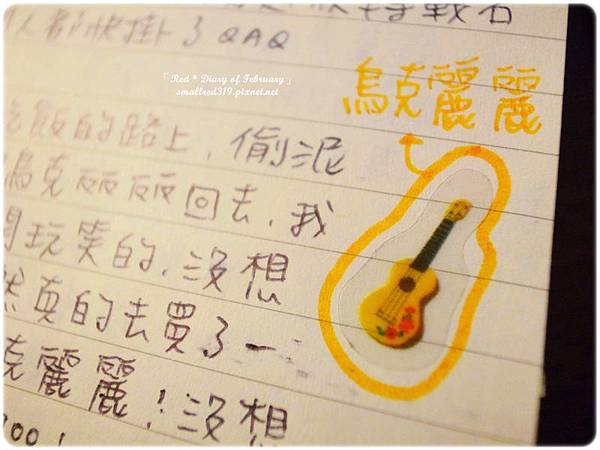 人都快掛了QAQ
「 Red * Diary of February 」
smallred319.pixnet.net
烏克麗麗
吃飯的路上,偷泥
烏克丽丽回去,我
開玩笑的,沒想
然真的去買了一
克麗麗!沒想
00!